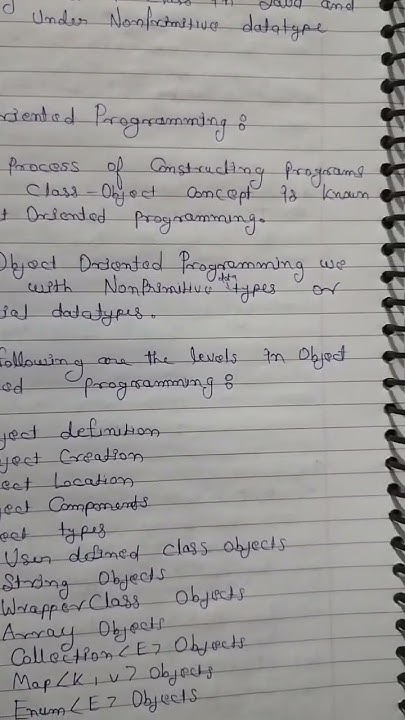 Java and
Under Nonprimitive datatype
riented Programming :
Process of Constructing Programs
Class-Object concept is known
t Oriented programming.
Object Oriented Programming we
with NonPrimitive data types or
ial datatypes.
Following are the levels in Object
ed programming :
ject definition
ject Creation
ect Location
ject Components
ect types
User defined class objects
String Objects
WrapperClass Objects
Array Objects
Collection<E> Objects
Map<K, V> Objects
Enum<E> Objects